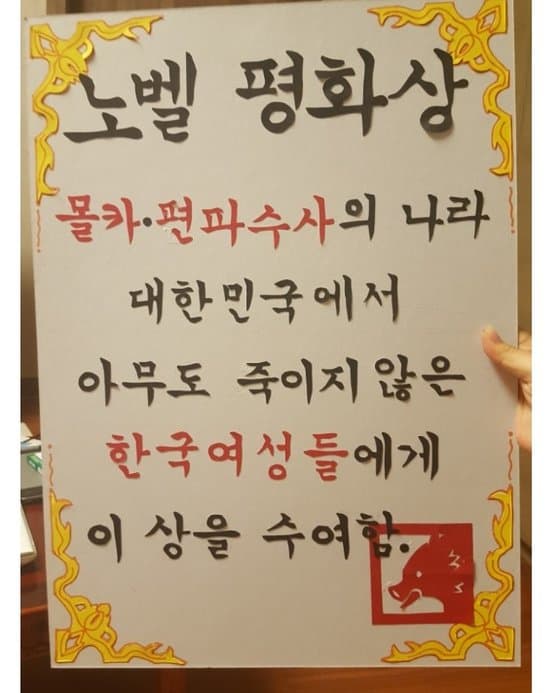 노벨 평화상
몰카·편파수사의 나라
대한민국에서
아무도 죽이지 않은
한국여성들에게
이 상을 수여함.